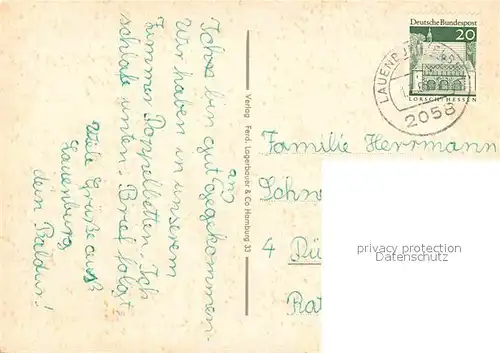 Ich bin gut angekommen.
Wir haben in unserem
Zimmer Doppelbetten. Ich
schlafe unten. Brief folgt
Viele Grüße aus
Lauenburg
dein Baldur!
Verlag Ferd. Lagerbauer & Co Hamburg 33
Deutsche Bundespost
20
LORSCH/HESSEN
LAUENBURG
2058
Familie Herrmann
4
privacy protection
Datenschutz